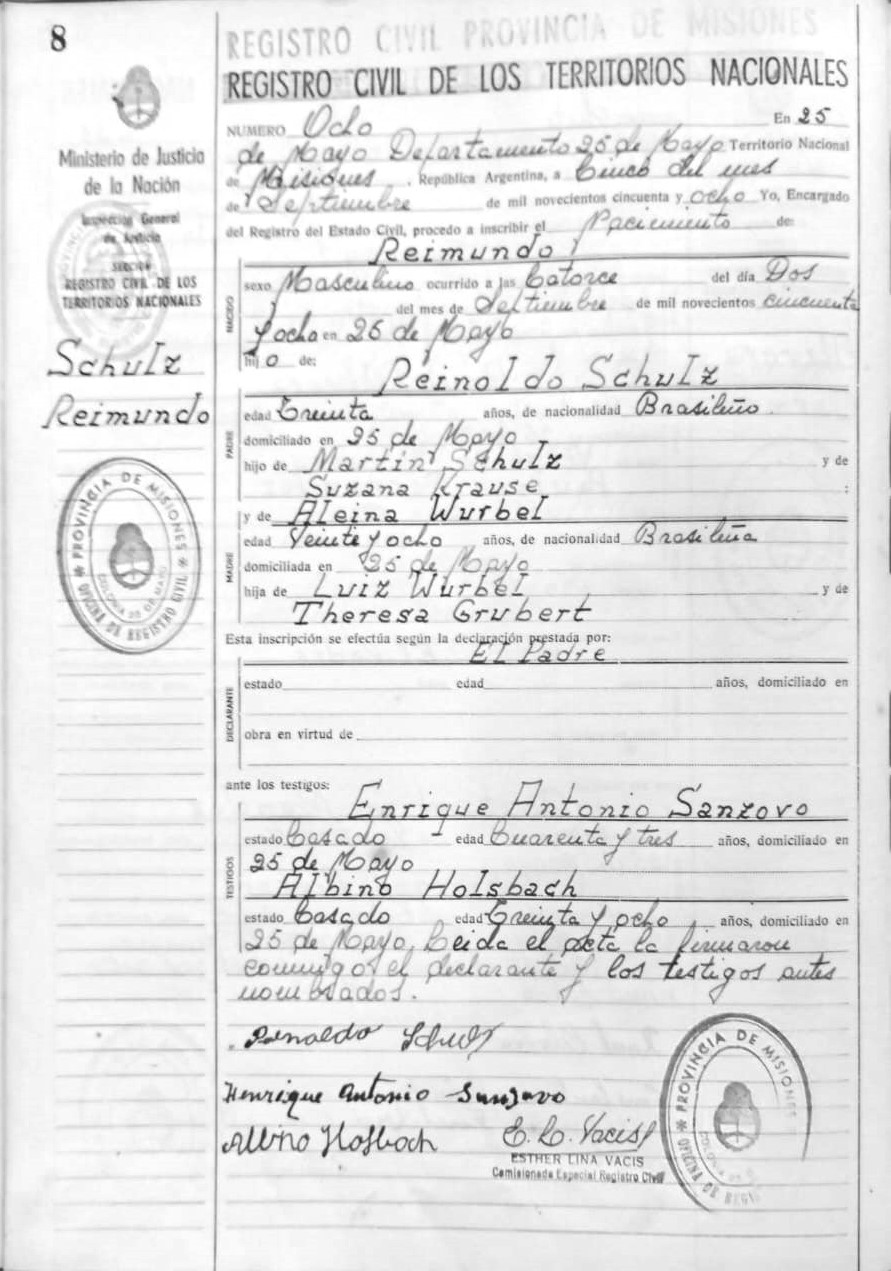 8
REGISTRO CIVIL PROVINCIA DE MISIONES
REGISTRO CIVIL DE LOS TERRITORIOS NACIONALES
Ministerio de Justicia
de la Nación
Inspección General
de Justicia
SECCION
REGISTRO CIVIL DE LOS
TERRITORIOS NACIONALES
Schulz
Reimundo
PROVINCIA DE MISIONES
COLONIA 25 DE MAYO
OFICINA DE REGISTRO CIVIL
NUMERO Ocho En 25
de Mayo Departamento 25 de Mayo Territorio Nacional
de Misiones, República Argentina, a Cinco del mes
de Septiembre de mil novecientos cincuenta y ocho Yo, Encargado
del Registro del Estado Civil, procedo a inscribir el Nacimiento de:
Reimundo
NACIDO
sexo Masculino ocurrido a las Catorce del día Dos
del mes de Septiembre de mil novecientos cincuenta
y ocho en 25 de Mayo
hijo de:
Reinoldo Schulz
PADRE
edad Treinta años, de nacionalidad Brasileño
domiciliado en 25 de Mayo
hijo de Martin Schulz y de
Suzana Krause :
y de Aleina Wurbel
MADRE
edad Veinte y ocho años, de nacionalidad Brasileña
domiciliada en 25 de Mayo
hija de Luiz Wurbel y de
Theresa Grubert
Esta inscripción se efectúa según la declaración prestada por:
El Padre
DECLARANTE
estado edad años, domiciliado en
obra en virtud de
ante los testigos:
Enrique Antonio Sanzovo
TESTIGOS
estado Casado - edad Cuarenta y tres años, domiciliado en
25 de Mayo
Albino Holsbach
estado Casado edad Treinta y ocho años, domiciliado en
25 de Mayo, Leida el acta la firmaron
conmigo el declarante y los testigos antes
nombrados.
Reinaldo Schulz
Henrique Antonio Sanzovo
Albino Hosbach E. L. Vacis
ESTHER LINA VACIS
Comisionada Especial Registro Civil
PROVINCIA DE MISIONES
COLONIA 25
OFICINA DE REGIS